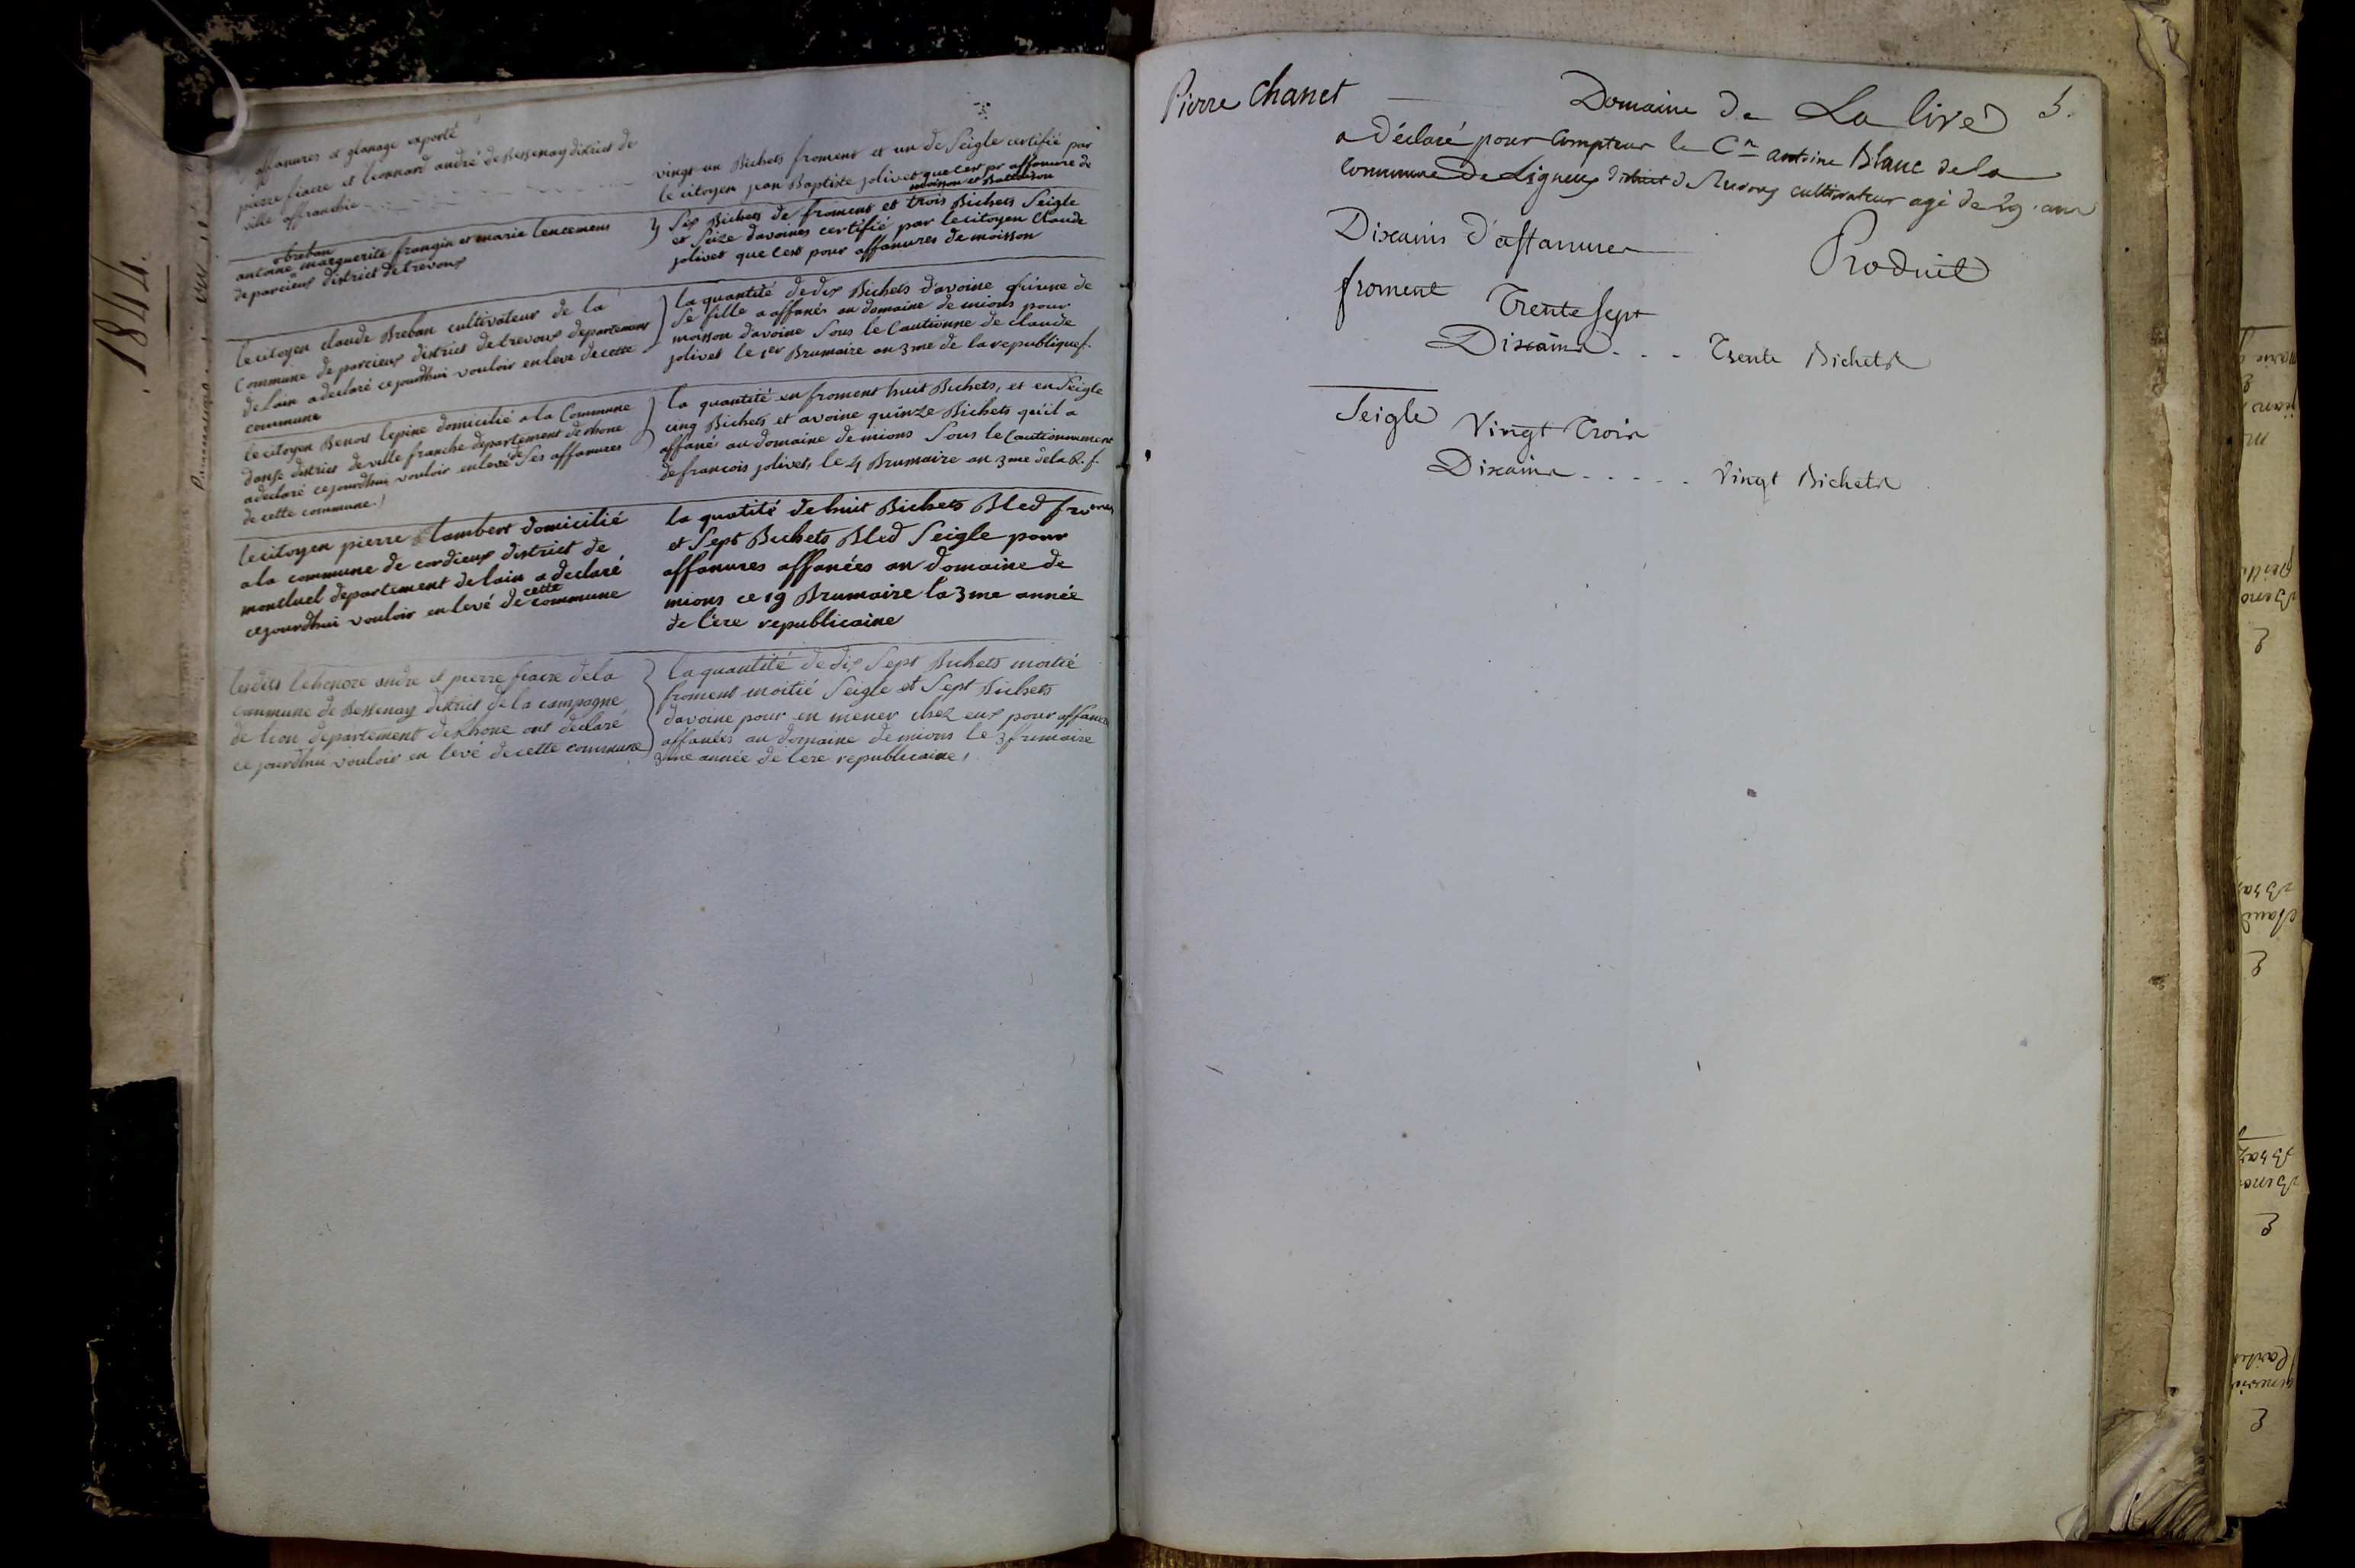 affanures et glanage exporté
pierre fiacre et leonnard andré de Bessenay district de
ville affranchie
vingt un Bichets froment et un de Seigle certifié par
le citoyen jean Baptiste jolivet que cest pr affanure de
moisson et Battaison
breban
antoine marguerite frangin et marie lencemens
de parcieux district de trevoux
Six Bichets de froment et trois Bichets Seigle
et Seize davoines certifié par le citoyen Claude
jolivet que cest pour affanures de moisson
le citoyen claude Breban cultivateur de la
Commune de parcieux district de trevoux departement
de lain a declaré ce jourdhui vouloir en levé de cette
commune
la quantité de dix Bichets davoine qu'une de
Se fille a affanés au domaine de mions pour
moisson davoine Sous le Cautionne de claude
jolivet le 1er Brumaire an 3me de la republique f.
le citoyen Benoit lepine domicilié a la Commune
danse district de ville franche departement de rhone
a declaré ce jourdhui vouloir enlevé de Ses affanures
de cette commune
la quantité en froment huit Bichets, et en Seigle
cinq Bichets et avoine quinze Bichets qu'il a
affanés au domaine de mions Sous le Cautionnement
de francois jolivet, le 4 Brumaire an 3me de la R. f.
le citoyen pierre lambert domicilié
a la commune de cordieux district de
montluel departement de lain a declaré
ce jourdhui vouloir en levé de cette commune
la quatité de huit Bichets Bled froment
et Sept Bichets Bled Seigle pour
affanures affanées au domaine de
mions ce 19 Brumaire la 3me année
de l'ere republicaine
lesdits lehonore andre et pierre fiacre de la
commune de Bessenay district de la campagne
de lion departement de Rhone ont declaré
ce jourdhui vouloir en levé de cette commune
la quantité de dix Sept Bichets moitié
froment moitié Seigle et Sept Bichets
davoine pour en mener chez eux pour affanures
affanées au domaine de mions le 3 frimaire
3me année de lere republicaine
1844.
Pierre Chanet Domaine de La live 5.
a Déclaré pour Compteur le Cen antoine Blanc de la
Commune De Ligneux district de Trevoux cultivateur agé de 29. ans
Dixains D'affanures
Produit
froment
Trente Sept
Dixains . . . Trente Bichets
Seigle Vingt Trois
Dixains . . . . . Vingt Bichets